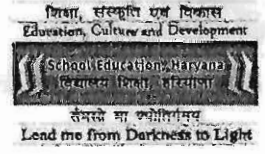 शिक्षा, संस्कृति एवं विकास
Education, Culture and Development
School Education, Haryana
विद्यालय शिक्षा, हरियाणा
तमसो मा ज्योतिर्गमय
Lead me from Darkness to Light